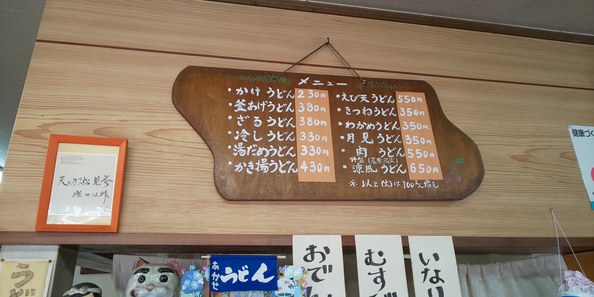 メニュー
・かけうどん 230円
・釜あげうどん 380円
・ざるうどん 380円
・冷しうどん 330円
・湯だめうどん 330円
・かき揚うどん 430円
・えび天うどん 550円
・きつねうどん 350円
・わかめうどん 350円
・月見うどん 350円
・肉うどん 550円
・涼風うどん 650円
うどん
おでん
むすび
いなり
健康づく
うど